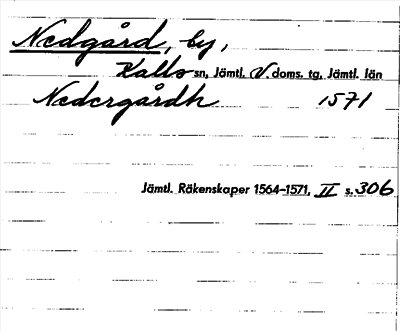 Nedgård, by,
Kalls sn, Jämtl. V. doms. tg, Jämtl. län
Nedergårdh 1571
Jämtl. Räkenskaper 1564-1571, II s. 306